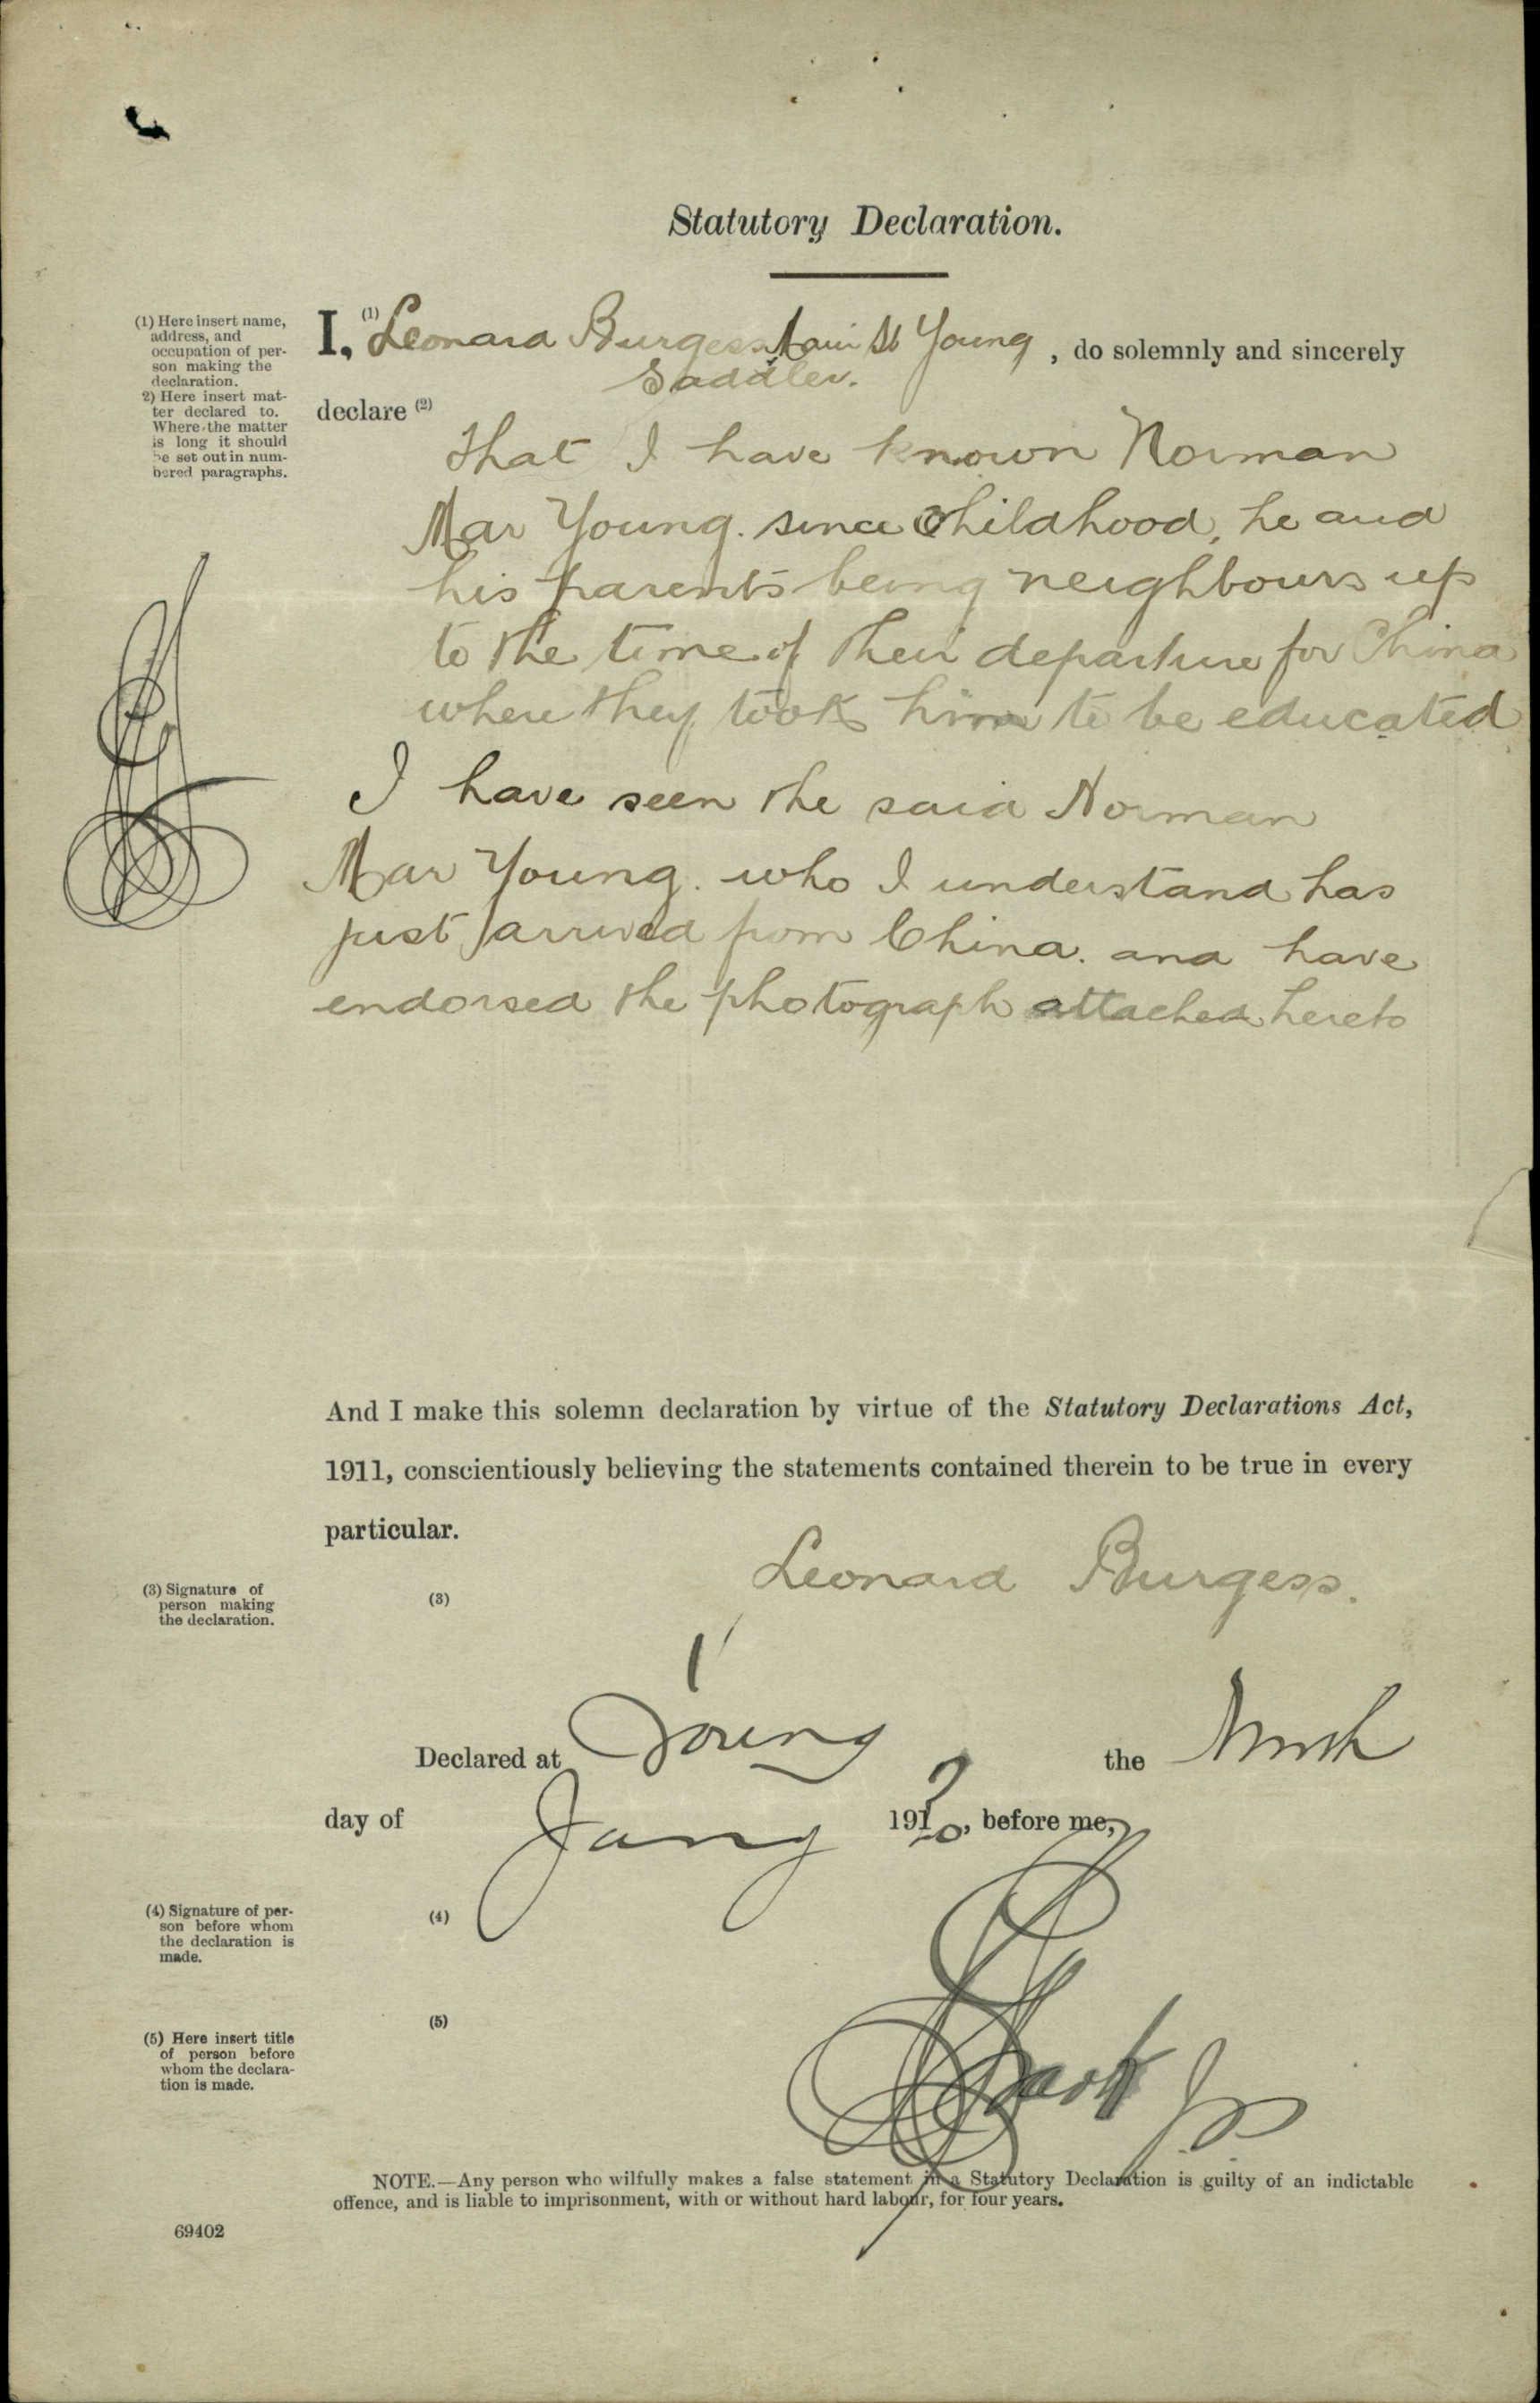 Statutory Declaration.
(1) Here insert name,
address, and
occupation of per-
son making the
declaration.
2) Here insert mat-
ter declared to.
Where the matter
is long it should
be set out in num-
bered paragraphs.
I, (1) Leonard Burgess Main St Young , do solemnly and sincerely
Saddler.
declare (2)
that I have known Norman
Mar Young. since childhood, he and
his parents being neighbours up
to the time of their departure for China
where they took him to be educated
I have seen the said Norman
Mar Young. who I understand has
just arrived from China. and have
endorsed the photograph attached hereto
And I make this solemn declaration by virtue of the Statutory Declarations Act,
1911, conscientiously believing the statements contained therein to be true in every
particular.
(3) Signature of
person making
the declaration.
(3)
Leonard Burgess.
Declared at Young the Ninth
day of Jany 1920, before me,
(4) Signature of per-
son before whom
the declaration is
made.
(4)
(5) Here insert title
of person before
whom the declara-
tion is made.
(5)
JP
NOTE.—Any person who wilfully makes a false statement in a Statutory Declaration is guilty of an indictable
offence, and is liable to imprisonment, with or without hard labour, for four years.
69402